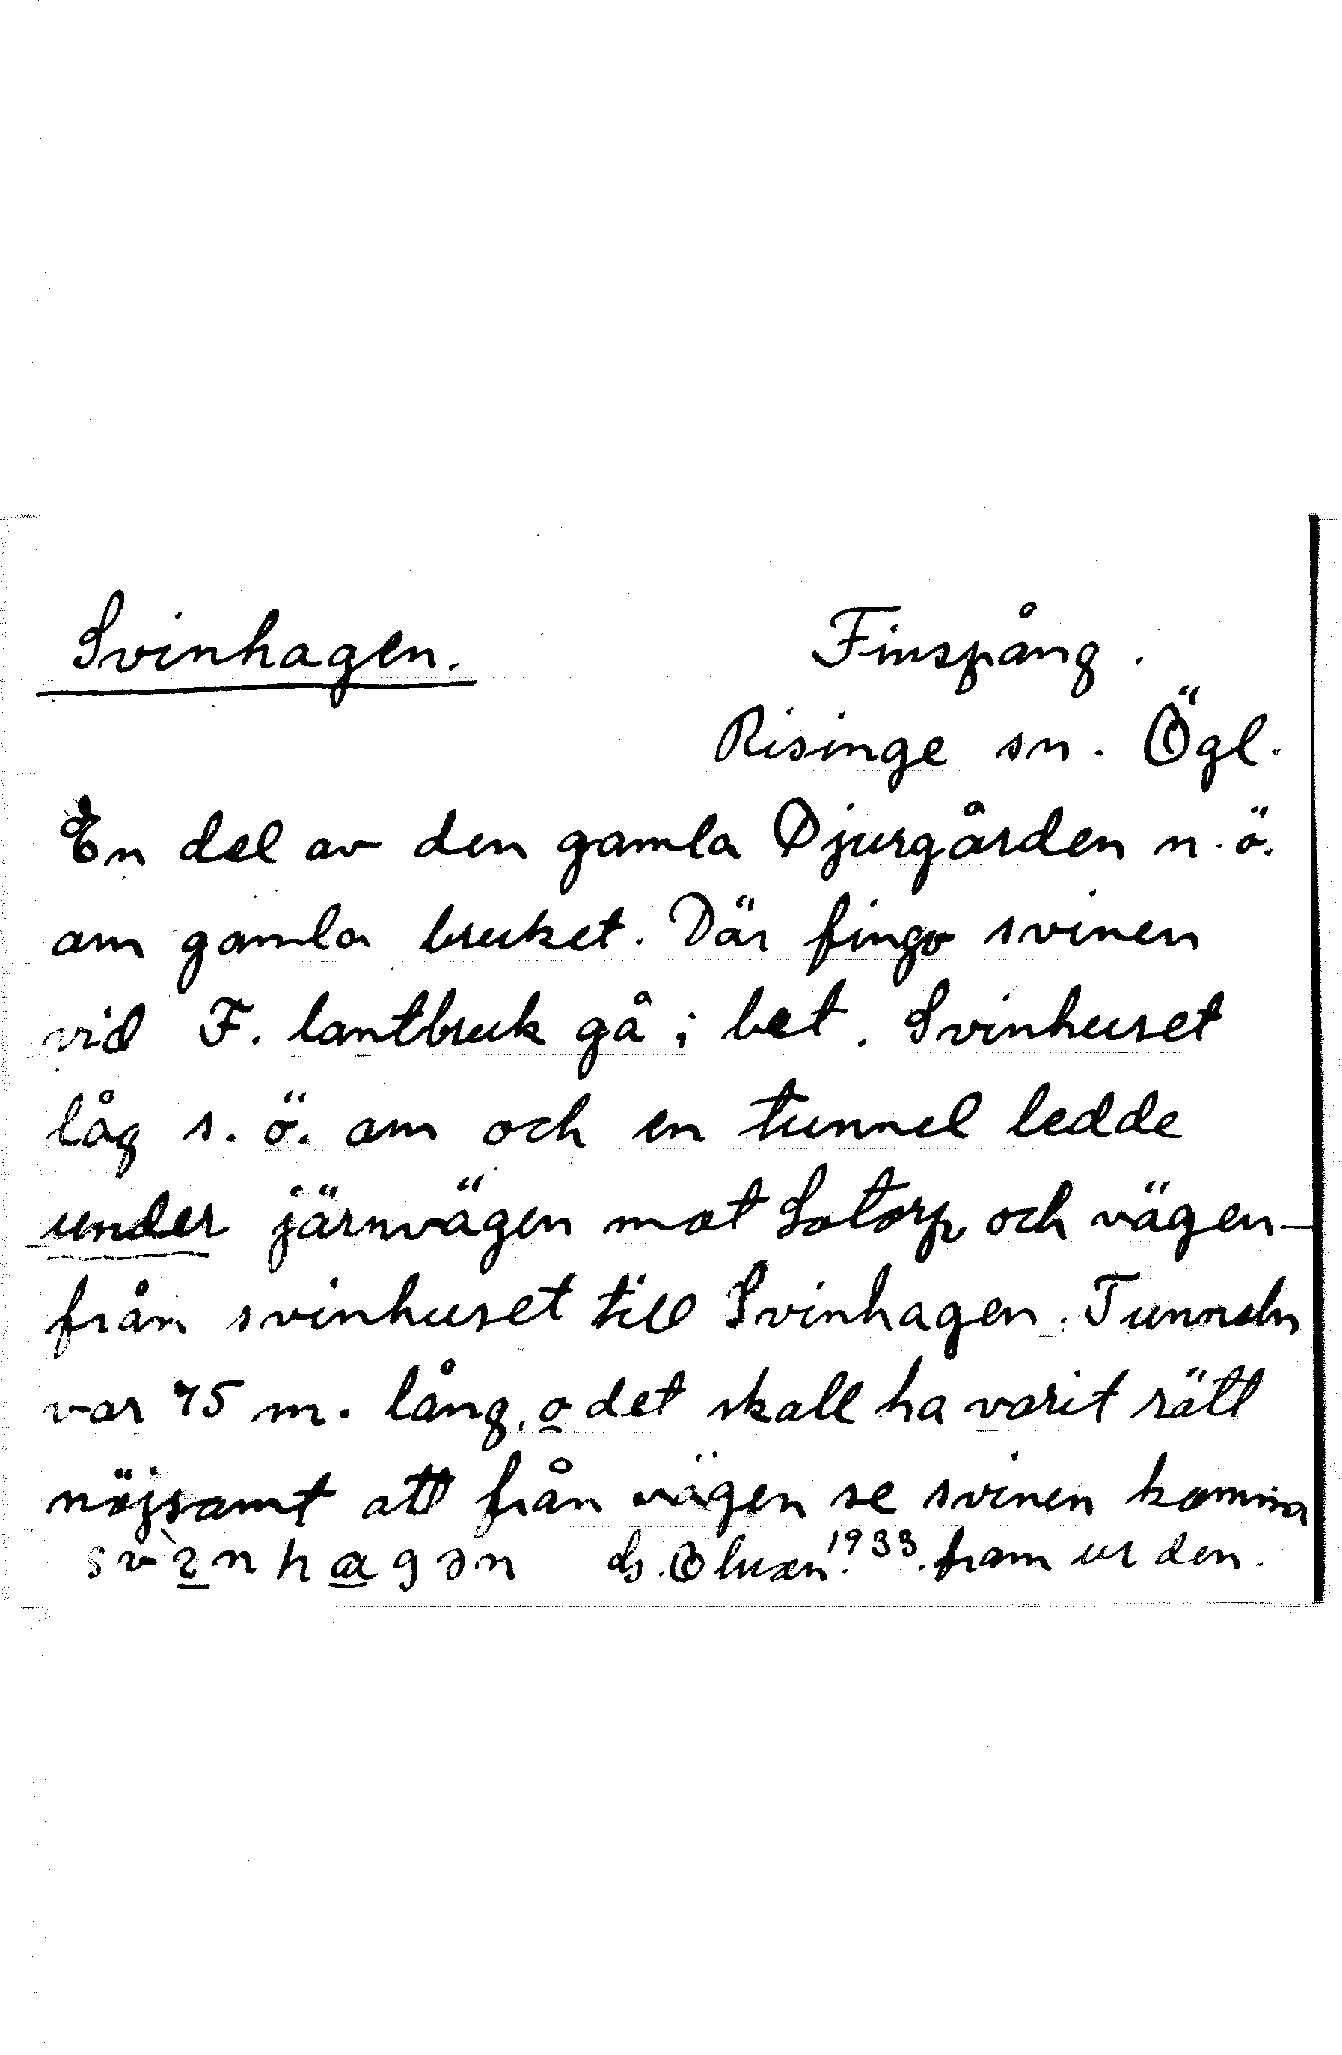 Svinhagen. Finspång.
Risinge sn. Ögl.
En del av den gamla Djurgården n.ö.
om gamla bruket. Där fingo svinen
vid F. lantbruk gå i bet. Svinhuset
låg s.ö. om och en tunnel ledde
under järnvägen mot Lotorp och vägen—
från svinhuset till Svinhagen. Tunneln
var 75 m. lång, o det skall ha varit rätt
nöjsamt att från vägen se svinen komma
fram ur den.
svìnhagən 1933.